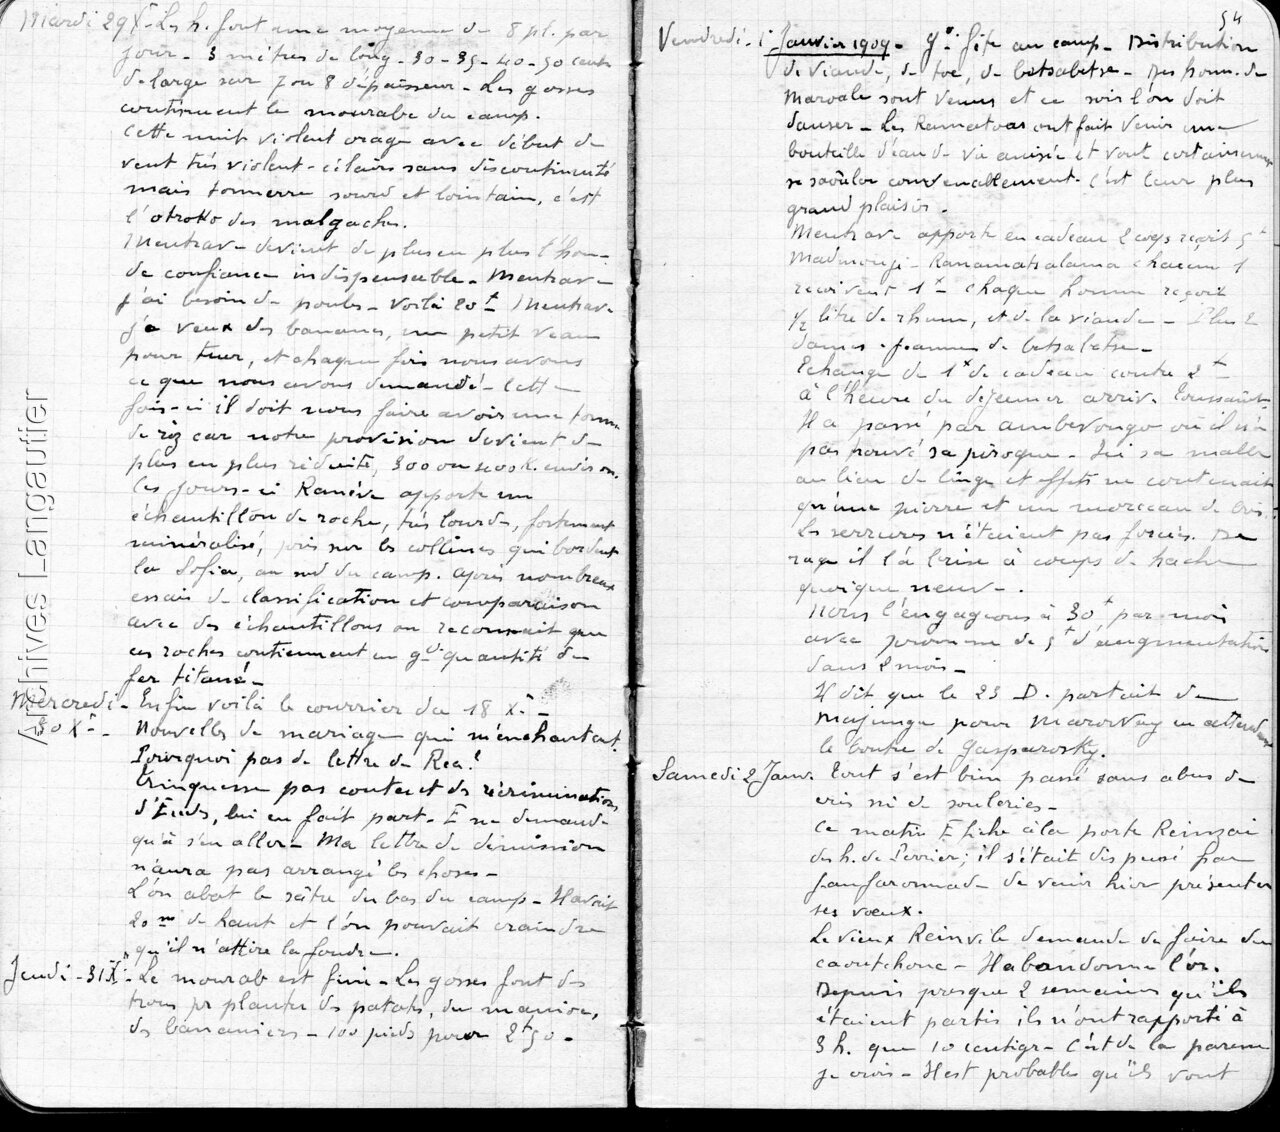 Mardi 29 Xe - Les h. font une moyenne de 8 pl. par
jour - 3 mètres de long - 30 - 35 - 40 - 50 cent
de large sur 7 ou 8 d'épaisseur - Les gosses
continuent le mourabe du camp.
Cette nuit violent orage avec début de
vent très violent - éclairs sans discontinuité
mais tonnerre sourd et lointain, c'est
l' des malgaches.
Mentrav - devient de plus en plus l'hom-
de confiance indispensable - Mentrav -
j'ai besoin de poules - Voilà 20 t Mentrav.
je veux des bananes, un petit veau
pour tuer, et chaque fois nous avons
ce que nous avons demandé - Cette
fois-ci il doit nous faire avoir une tonne
de riz car notre provision devient de
plus en plus réduite, 300 ou 400 K. environ.
Ces jours-ci Ranève apporte un
échantillon de roche, très lourde, fortement
minéralisé, pris sur les collines qui bordent
la Sofia, au sud du camp. Après nombreux
essais de classification et comparaison
avec des échantillons on reconnait que
ces roches contiennent en gde quantité du
fer titané -
Mercredi - Enfin voilà le courrier du 18 Xe -
30 Xe - Nouvelles de mariage qui m'enchantent.
Pourquoi pas de lettre de Rea?
Trinquesse pas content des récriminations
d'Euds, lui en fait part - E ne demande
qu'à s'en aller - Ma lettre de démission
n'aura pas arrangé les choses -
L'on abat le sâtre du bas du camp - Il avait
20 m de haut et l'on pouvait craindre
qu'il n'attire la foudre.
Jeudi - 31 Xe - Le mourab est fini - Les gosses font des
trous pr planter des patates, du manioc,
des bananiers - 100 pieds pour 2f50 -
54
Vendredi - 1r Janvier 1909 - gde fête au camp - Distribution
de viande, de toc, de betsabetse - Des hom. de
Maroale sont venus et ce soir l'on doit
danser - Les Ramatoas ont fait venir une
bouteille d'eau de vie anisée et vont certainement
se saoûler convenablement. C'est leur plus
grand plaisir.
Mentrave apporte en cadeau 2 coqs reçoit 5 t
Madmouji - Ranamatsalama chacun 1
reçoivent 1 x - chaque homme reçoit
1/2 litre de rhum, et de la viande - Plus 2
dames-jeannes de betsabetse -
Echange de 1 x de cadeau contre 2 t -
à l'heure du déjeuner arrive Toussaint.
Il a passé par ambevongo où il n'a
pas trouvé sa pirogue - Ici sa malle
au lieu de linge et effets ne contenait
qu'une pierre et un morceau de bois.
Les serrures n'étaient pas forcées. De
rage il l'a brisée à coups de hache
quoique neuve - .
Nous l'engageons à 30 t par mois
avec promesse de 5 t d'augmentation
dans 2 mois -
Il dit que le 23 D. partait de
Majunga pour Marovoay en attendant
le boutre de Gasparosky.
Samedi 2 Janv. Tout s'est bien passé sans abus de
cris ni de souleries -
Ce matin E fiche à la porte Reinizai
des h. de Perrier; il s'était dispensé par
fanfaronnade de venir hier présenter
ses voeux.
Le vieux Reinvile demande de faire du
caoutchouc - Il abandonne l'or.
Depuis presque 2 semaines qu'ils
étaient partis ils n'ont rapporté à
3 h. que 10 centigr - C'est de la paresse
je crois - Il est probable qu'ils vont
Archives Langautier